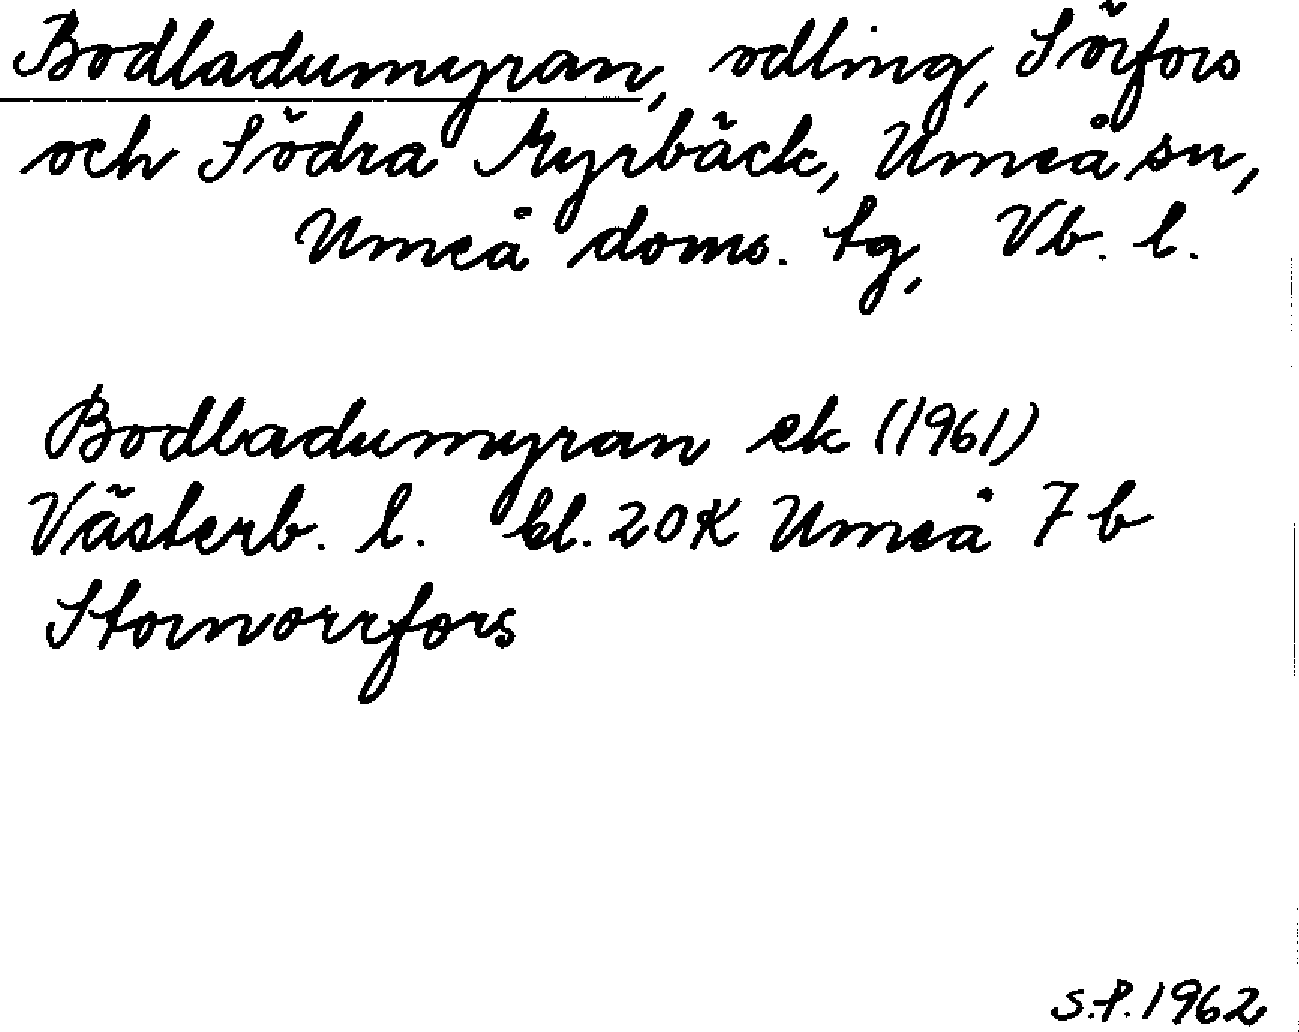 Bodladumyran, odling, Sörfors
och Södra Myrbäck, Umeå sn,
Umeå doms. tg, Vb. l.
Bodladumyran ek (1961)
Västerb. l. bl. 20K Umeå 7b
Stornorrfors
S.P. 1962